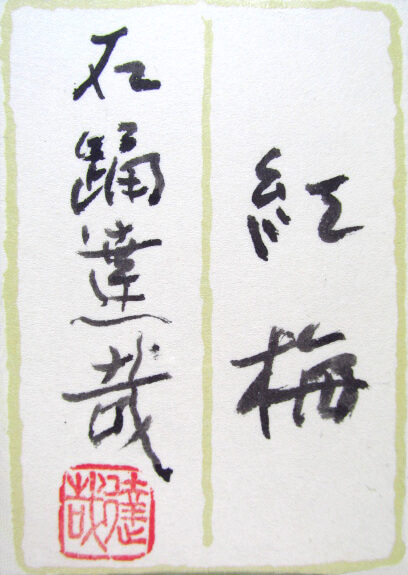 紅梅
石踊達哉
達哉